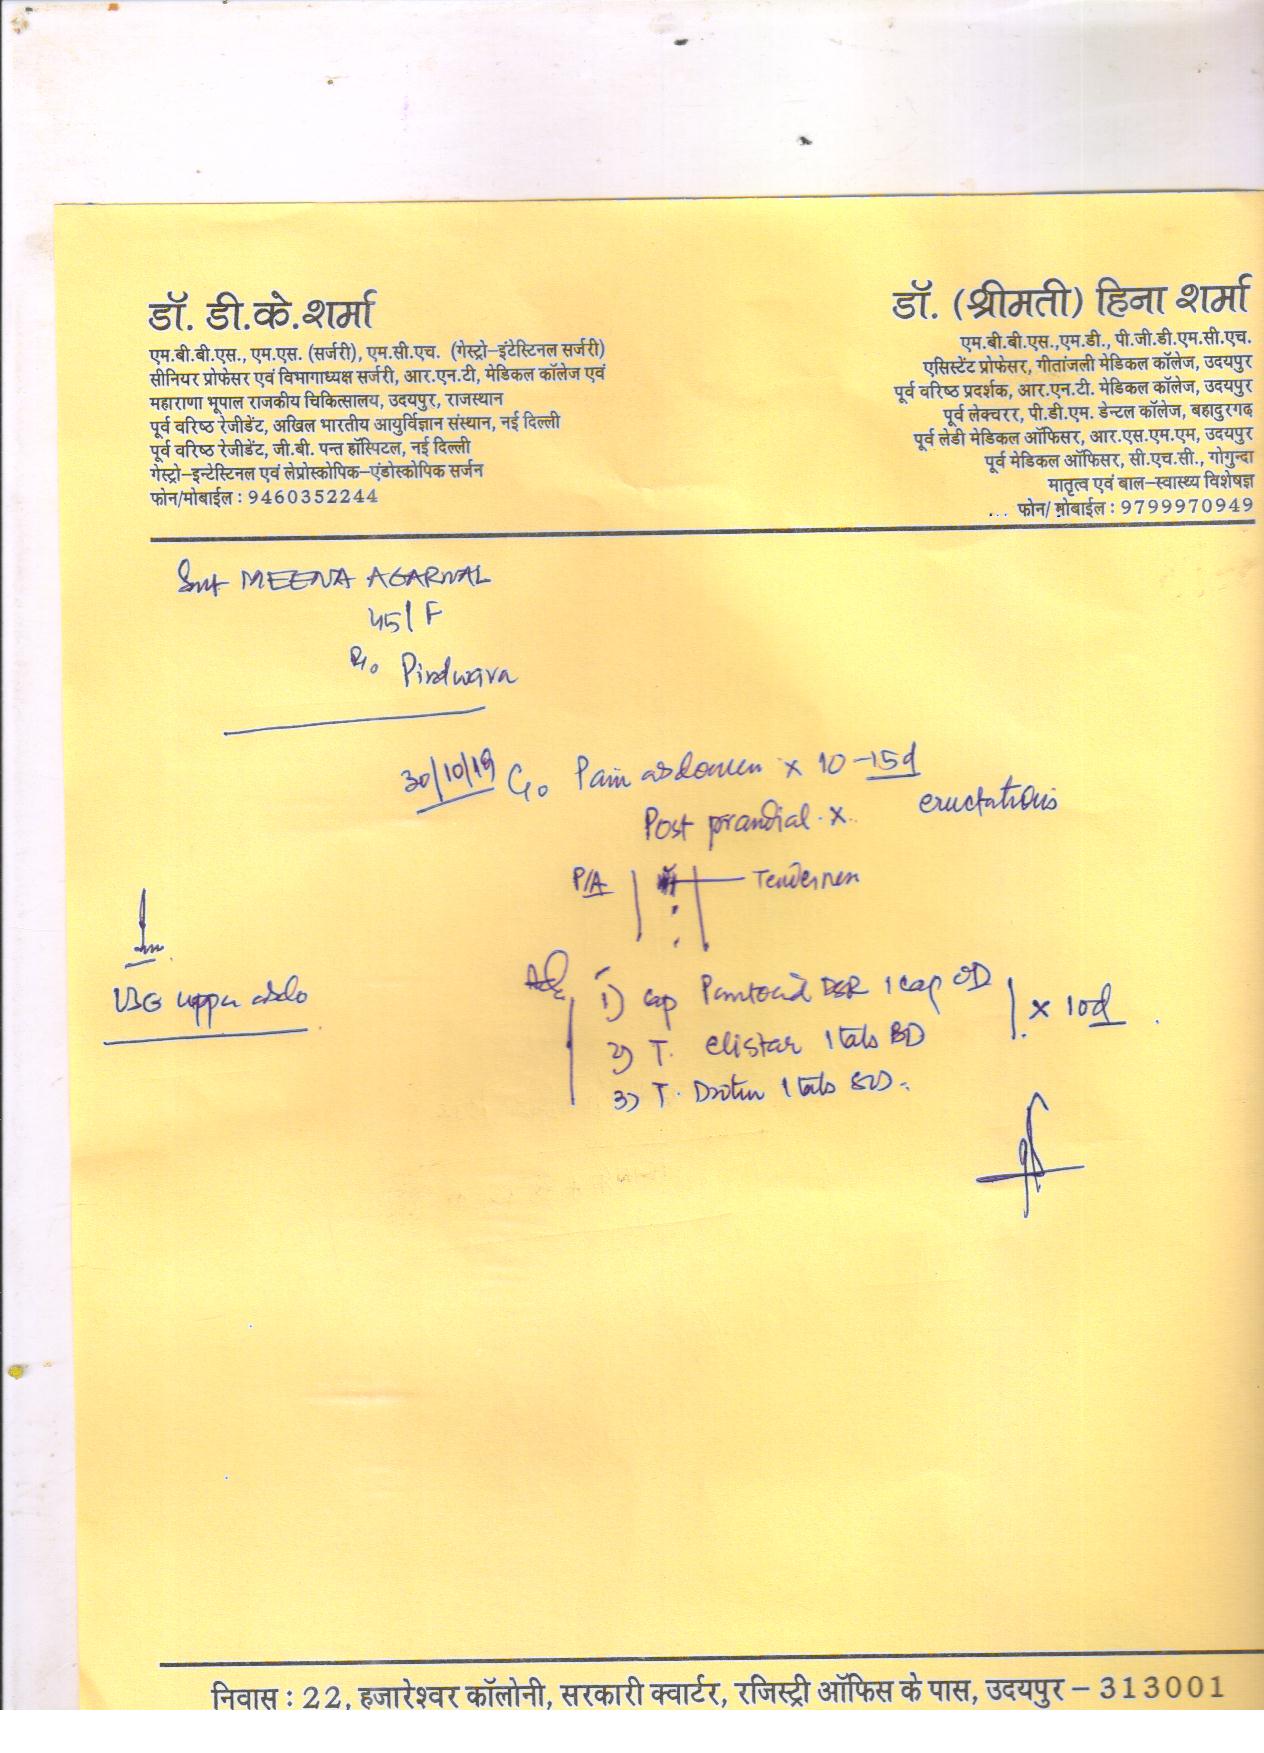 डॉ. डी.के.शर्मा
एम.बी.बी.एस., एम.एस. (सर्जरी), एम.सी.एच. (गेस्ट्रो-इंटेस्टिनल सर्जरी)
सीनियर प्रोफेसर एवं विभागाध्यक्ष सर्जरी, आर.एन.टी, मेडिकल कॉलेज एवं
महाराणा भूपाल राजकीय चिकित्सालय, उदयपुर, राजस्थान
पूर्व वरिष्ठ रेजीडेंट, अखिल भारतीय आयुर्विज्ञान संस्थान, नई दिल्ली
पूर्व वरिष्ठ रेजीडेंट, जी.बी. पन्त हॉस्पिटल, नई दिल्ली
गेस्ट्रो-इन्टेस्टिनल एवं लेप्रोस्कोपिक-एंडोस्कोपिक सर्जन
फोन/मोबाईल : 9460352244
डॉ. (श्रीमती) हिना शर्मा
एम.बी.बी.एस.,एम.डी., पी.जी.डी.एम.सी.एच.
एसिस्टेंट प्रोफेसर, गीतांजली मेडिकल कॉलेज, उदयपुर
पूर्व वरिष्ठ प्रदर्शक, आर.एन.टी. मेडिकल कॉलेज, उदयपुर
पूर्व लेक्चरर, पी.डी.एम. डेन्टल कॉलेज, बहादुरगढ़
पूर्व लेडी मेडिकल ऑफिसर, आर.एस.एम.एम, उदयपुर
पूर्व मेडिकल ऑफिसर, सी.एच.सी., गोगुन्दा
मातृत्व एवं बाल-स्वास्थ्य विशेषज्ञ
फोन/ मोबाईल : 9799970949
Smt MEENA AGARWAL
45/F
R/o Pindwara
30/10/19 C/o Pain abdomen x 10-15d
Post prandial x eructations
P/A Tenderness
USG upper abdo
Adv 1) Cap Pantocid DSR 1 cap OD
2) T. Clistar 1 tab BD x 10d
3) T. Drotin 1 tab
निवास : 22, हजारेश्वर कॉलोनी, सरकारी क्वार्टर, रजिस्ट्री ऑफिस के पास, उदयपुर - 313001